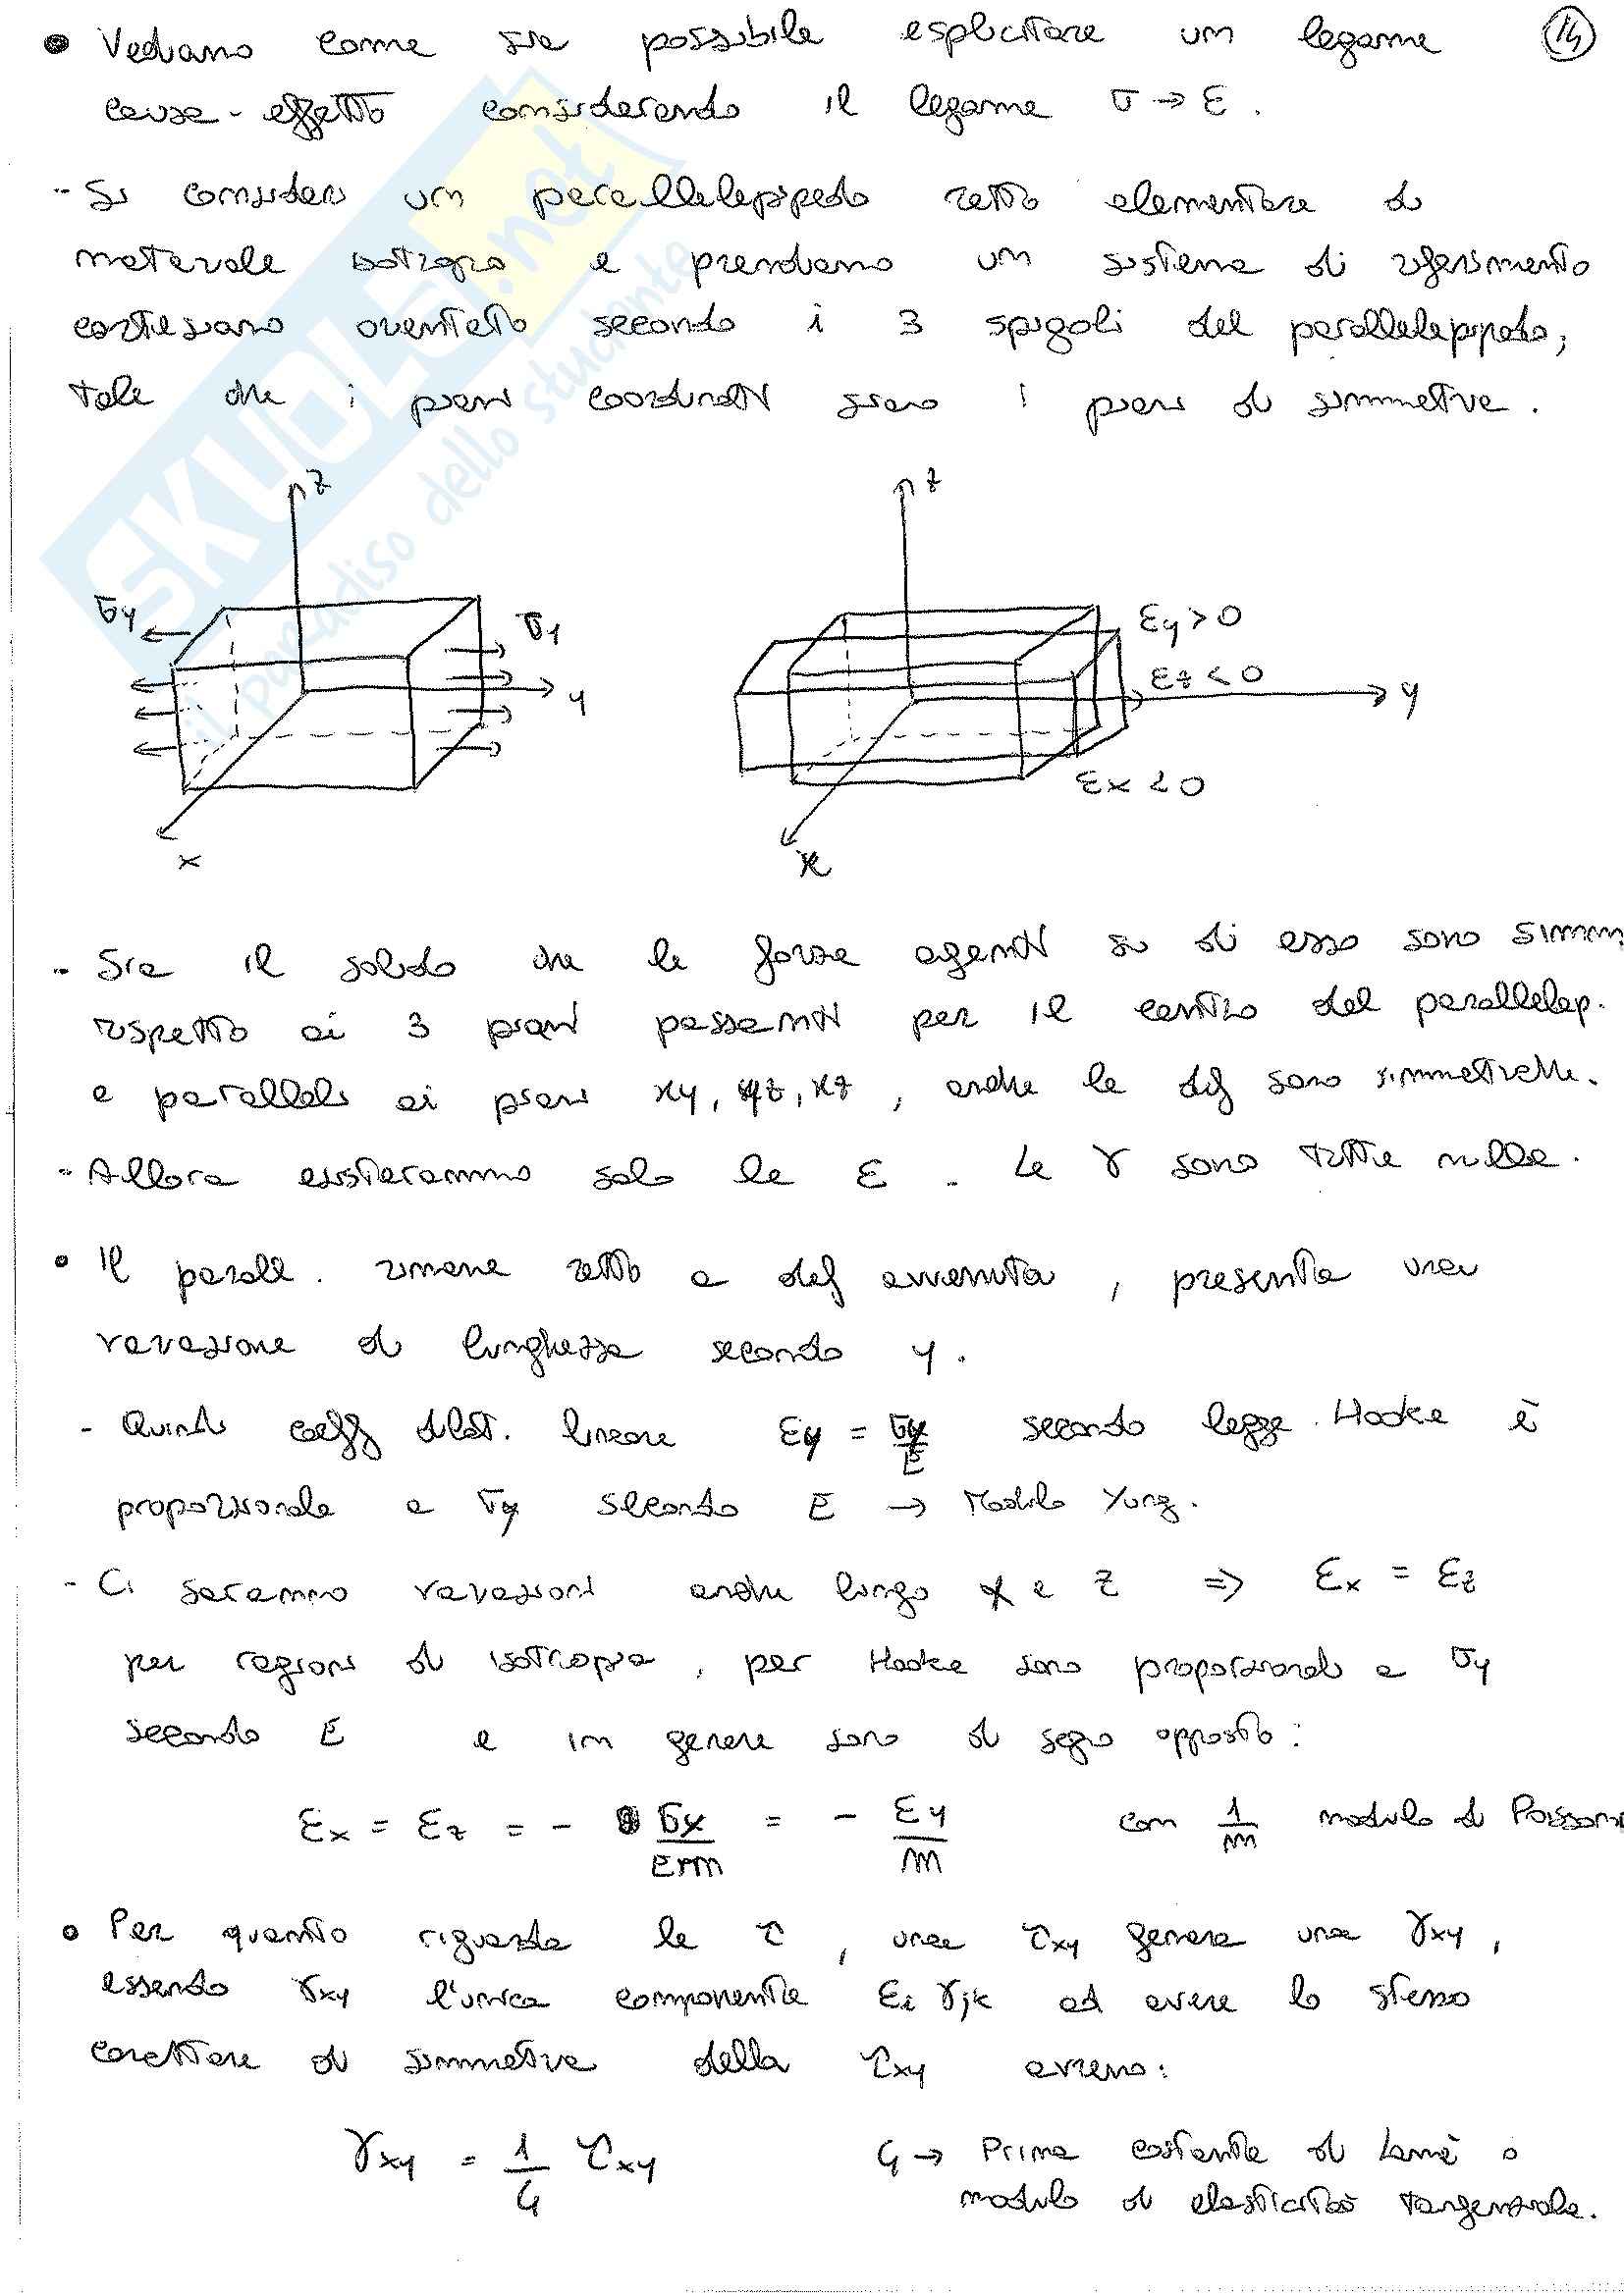 • Vediamo come sia possibile esplicitare un legame 14
causa-effetto considerando il legame σ → ε.
- Si consideri un parallelepipedo retto elementare di
materiale isotropo e prendiamo un sistema di riferimento
cartesiano orientato secondo i 3 spigoli del parallelepipedo,
tale che i piani coordinati siano i piani di simmetria.
z
z
σy
σy
εy > 0
εz < 0
y
y
εx < 0
x
x
- Sia il solido che le forze agenti su di esso sono simm
rispetto ai 3 piani passanti per il centro del parallelep.
e paralleli ai piani xy, yz, xz, anche le def sono simmetriche.
- Allora esisteranno solo le ε - Le γ sono tutte nulle.
• Il parall. rimane retto a def avvenuta, presenta una
variazione di lunghezza secondo y.
- Quindi coeff dilat. lineare εy = σy/E secondo legge Hooke è
proporzionale a σy secondo E → Modulo Yung.
- Ci saranno variazioni anche lungo x e z ⇒ εx = εz
per ragioni di isotropia, per Hooke sono proporzionali a σy
secondo E e in genere sono di segno opposto:
εx = εz = - σy/E m = - εy/m con 1/m modulo di Poisson
• Per quanto riguarda le τ, una τxy genera una γxy,
essendo γxy l'unica componente εi γjk ad avere lo stesso
carattere di simmetria della τxy avremo:
γxy = 1/G τxy G → Prima costante di Lamè o
modulo di elasticità tangenziale.
SKUOLA.net
il paradiso dello studente